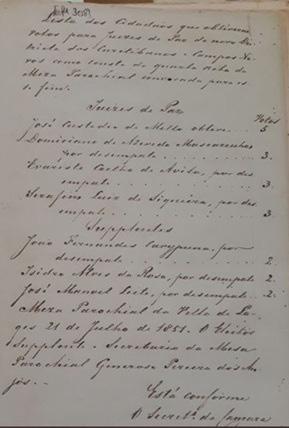 Lista dos Cidadãos que obtiverão
votos para Juizes de Paz do novo Des-
tricto dos Coritibanos e Campos No-
vos como consta da quarta acta da
Meza Parochial convocada para es-
se fim.
Juizes de Paz
Votos
José Custodio de Mello obteve . . 5
Domiciano de Azevedo Mascarenhas
por desempate . . . . . . 3.
Evaristo Coelho de Avila, por des
empate . . . . . . 3
Serafim Luiz de Siqueira, por des
empate . . . . . . 3
Supplentes
João Fernandes , por
desempate . . . . . . 2.
Isidro Alves da Rosa, por desempate 2.
José Manoel Leite, por desempate . . 2.
Meza Parochial da Villa de La-
ges 21 de Julho de 1851. O Eleitor
Supplente - Secretario da Mesa
Parochial Generoso Pereira dos An-
jos. -
Está conforme
O Secretº. da Camara